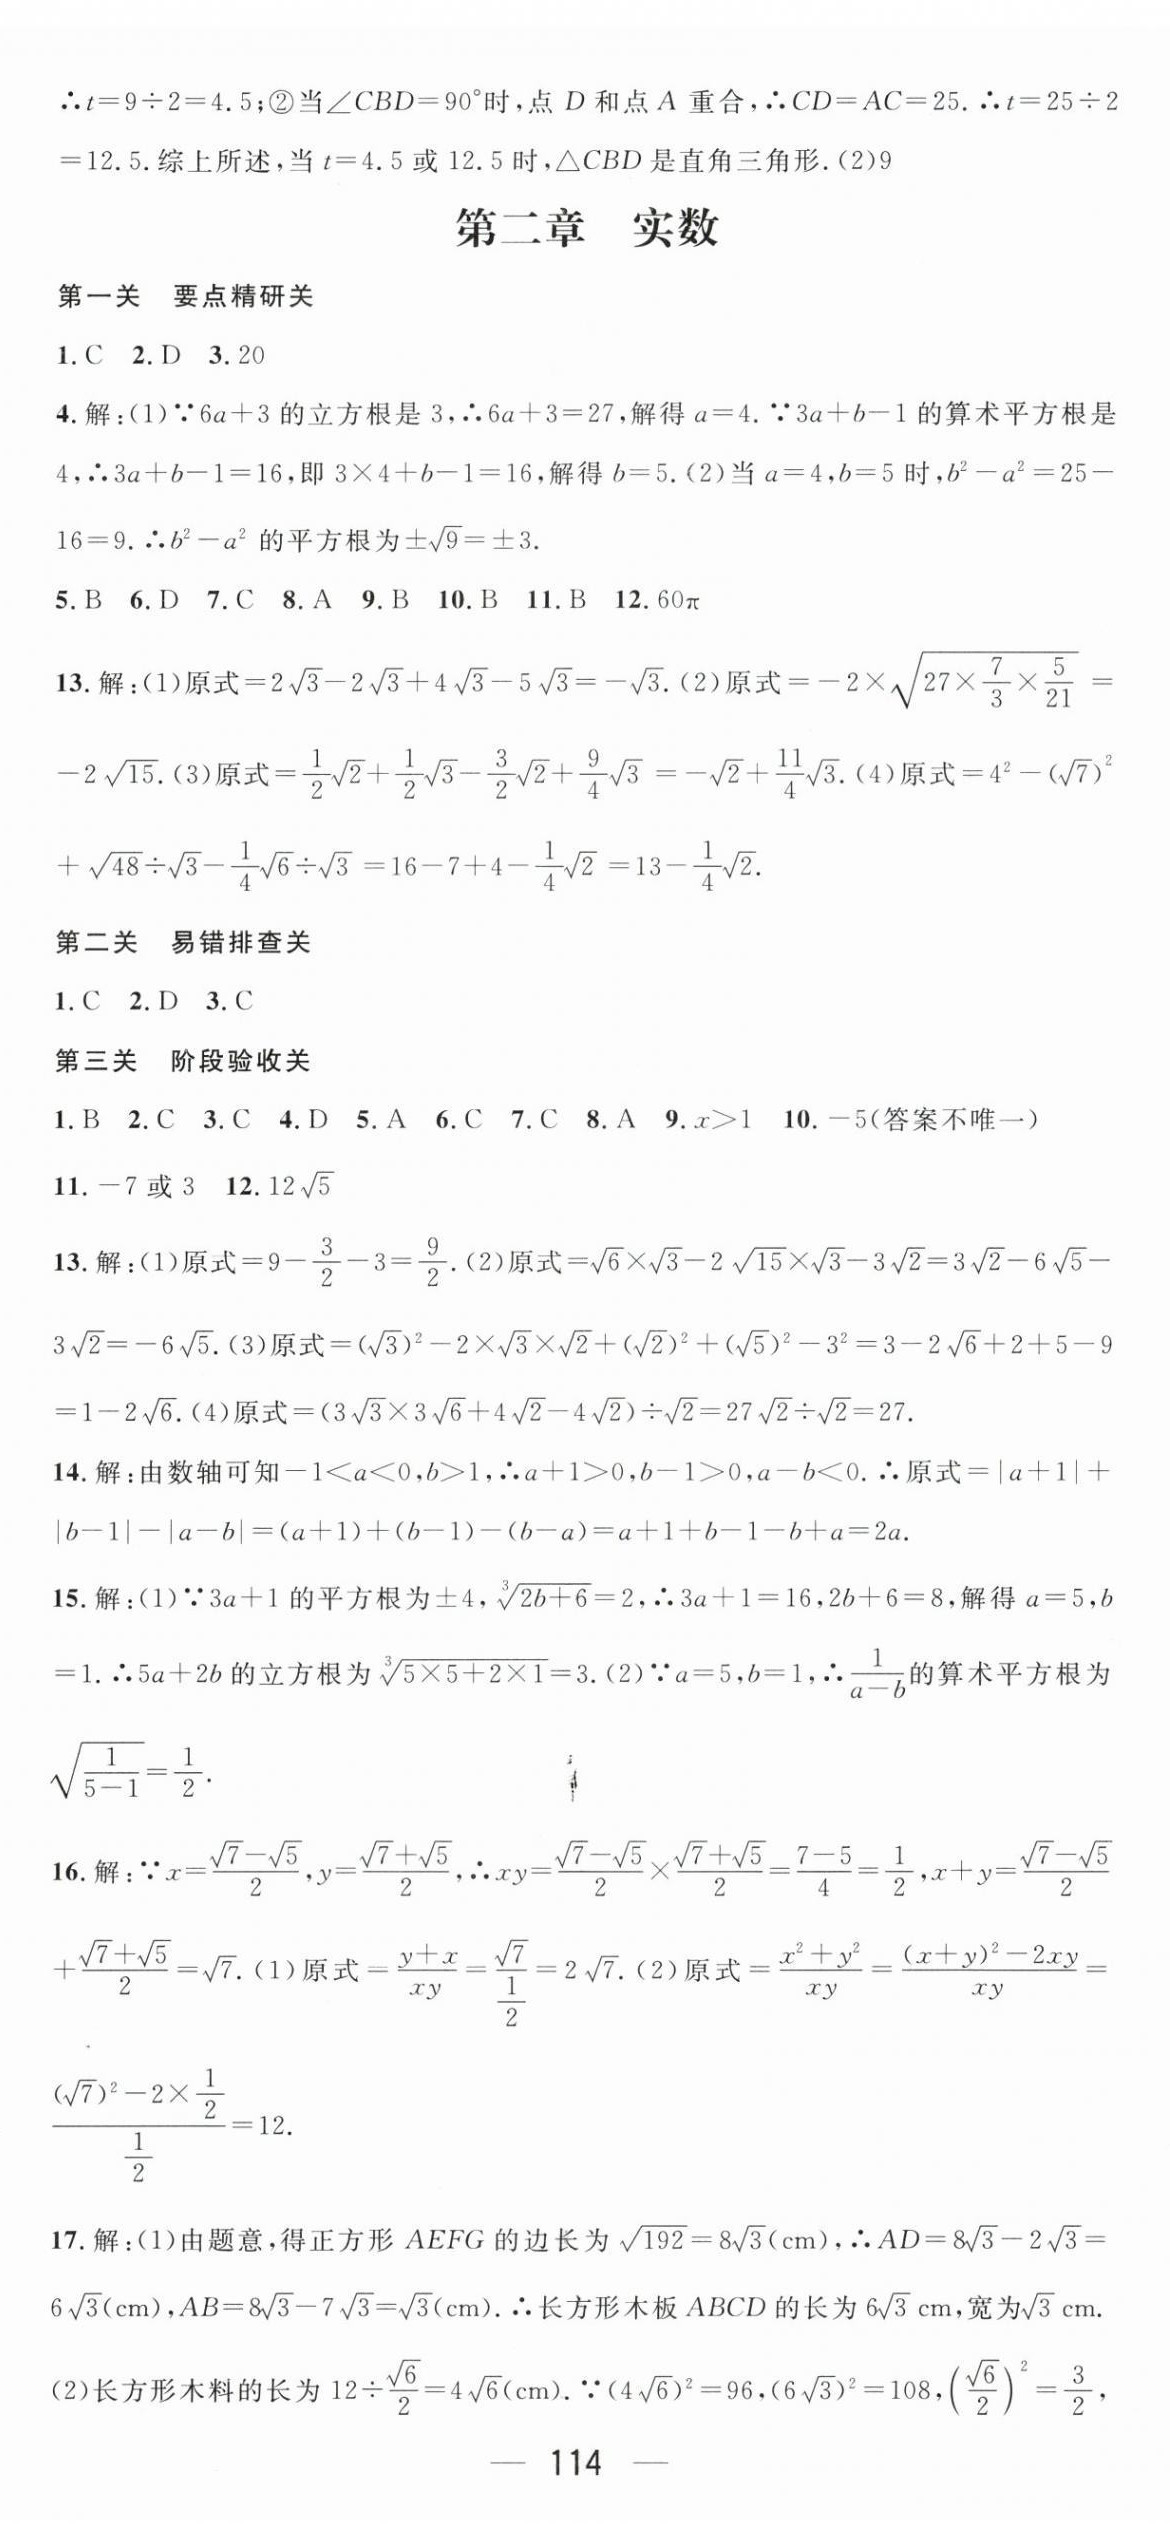 ∴t=9÷2=4.5;②当∠CBD=90°时,点 D 和点 A 重合,∴CD=AC=25. ∴t=25÷2
=12.5.综上所述,当 t=4.5 或 12.5 时,△CBD 是直角三角形.(2)9
第二章 实数
第一关 要点精研关
1.C 2.D 3.20
4.解:(1)∵6a+3 的立方根是 3,∴6a+3=27,解得 a=4. ∵3a+b-1 的算术平方根是
4,∴3a+b-1=16,即 3×4+b-1=16,解得 b=5.(2)当 a=4,b=5 时,b²-a²=25-
16=9. ∴b²-a² 的平方根为±√9=±3.
5.B 6.D 7.C 8.A 9.B 10.B 11.B 12.60π
13.解:(1)原式=2√3-2√3+4√3-5√3=-√3.(2)原式=-2×√(27×7/3×5/21)=
-2√15.(3)原式=1/2√2+1/2√3-3/2√2+9/4√3=-√2+11/4√3.(4)原式=4²-(√7)²
+√48÷√3-1/4√6÷√3=16-7+4-1/4√2=13-1/4√2.
第二关 易错排查关
1.C 2.D 3.C
第三关 阶段验收关
1.B 2.C 3.C 4.D 5.A 6.C 7.C 8.A 9.x>1 10.-5(答案不唯一)
11.-7 或 3 12.12√5
13.解:(1)原式=9-3/2-3=9/2.(2)原式=√6×√3-2√15×√3-3√2=3√2-6√5-
3√2=-6√5.(3)原式=(√3)²-2×√3×√2+(√2)²+(√5)²-3²=3-2√6+2+5-9
=1-2√6.(4)原式=(3√3×3√6+4√2-4√2)÷√2=27√2÷√2=27.
14.解:由数轴可知-1<a<0,b>1,∴a+1>0,b-1>0,a-b<0. ∴原式=|a+1|+
|b-1|-|a-b|=(a+1)+(b-1)-(b-a)=a+1+b-1-b+a=2a.
15.解:(1)∵3a+1 的平方根为±4,∛(2b+6)=2,∴3a+1=16,2b+6=8,解得 a=5,b
=1. ∴5a+2b 的立方根为∛(5×5+2×1)=3.(2)∵a=5,b=1,∴1/(a-b)的算术平方根为
√(1/(5-1))=1/2.
16.解:∵x=(√7-√5)/2,y=(√7+√5)/2,∴xy=(√7-√5)/2×(√7+√5)/2=(7-5)/4=1/2,x+y=(√7-√5)/2
+(√7+√5)/2=√7.(1)原式=(y+x)/xy=√7/(1/2)=2√7.(2)原式=(x²+y²)/xy=((x+y)²-2xy)/xy=
((√7)²-2×1/2)/(1/2)=12.
17.解:(1)由题意,得正方形 AEFG 的边长为√192=8√3(cm),∴AD=8√3-2√3=
6√3(cm),AB=8√3-7√3=√3(cm). ∴长方形木板 ABCD 的长为 6√3 cm,宽为√3 cm.
(2)长方形木料的长为 12÷√6/2=4√6(cm). ∵(4√6)²=96,(6√3)²=108,(√6/2)²=3/2,
— 114 —